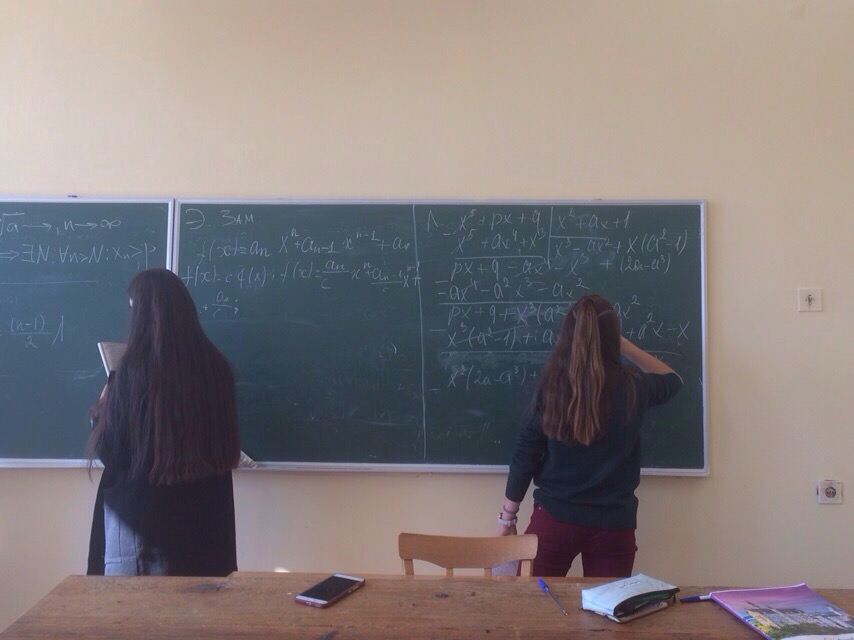 √a → 1, n → ∞
⇒ ∃N: ∀n>N: xₙ>p
(n-1)/2
Э. Зам
f(x)=aₙ xⁿ+aₙ₋₁ xⁿ⁻¹+a₀
f(x)=c·q(x); f(x)=aₙ/c xⁿ+aₙ₋₁/c
+ a₀/c;
x⁵+px+q | x²+ax+1
x⁵+ax⁴+x³ | x³-ax²+x(a²-1)
px+q-ax⁴-x³ +(2a-a³)
-ax⁴-a²x³-ax²
px+q+x³(a² ax²
x³(a²-1)+ +a²x-x
x²(2a-a³)+